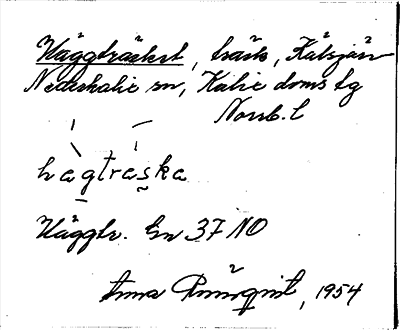 Häggträsket, träsk, Kälsjärv
Nederkalix sn, Kalix doms lg
Norrb. l
hägtraska
Häggtr. Gn 37 NO
Anna 1954